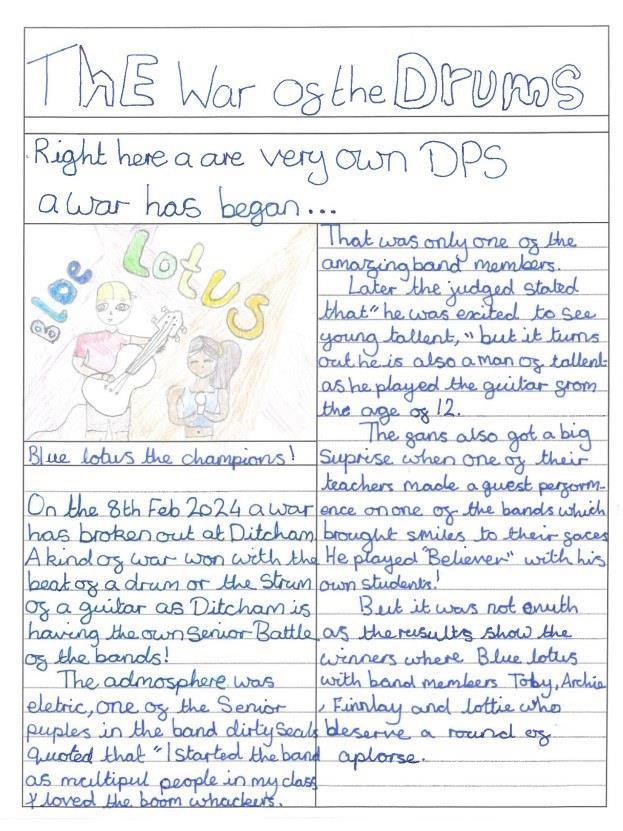 ThE War of the Drums
Right here a are very own DPS
a war has began...
Bloe Lotus
Blue lotus the champions!
On the 8th Feb 2024 a war
has broken out at Ditcham
A kind of war won with the
beat of a drum or the Strum
of a guitar as Ditcham is
having the own Senior Battle
of the bands!
The admosphere was
eletric, one of the Senior
puples in the band dirty Seals
quoted that "I started the band
as multipul people in my class
& loved the boom whackers.
That was only one of the
amazing band members.
Later the judged stated
that "he was exited to see
young tallent," but it turns
out he is also a man of tallent
as he played the guitar from
the age of 12.
The fans also got a big
Suprise when one of their
teachers made a guest perform-
ence on one of the bands which
brought smiles to their faces
He played "Believer" with his
own students!
But it was not enuth
as the results show the
winners where Blue lotus
with band members Toby, Archie
, Finnlay and lottie who
deserve a round of
aplorse.